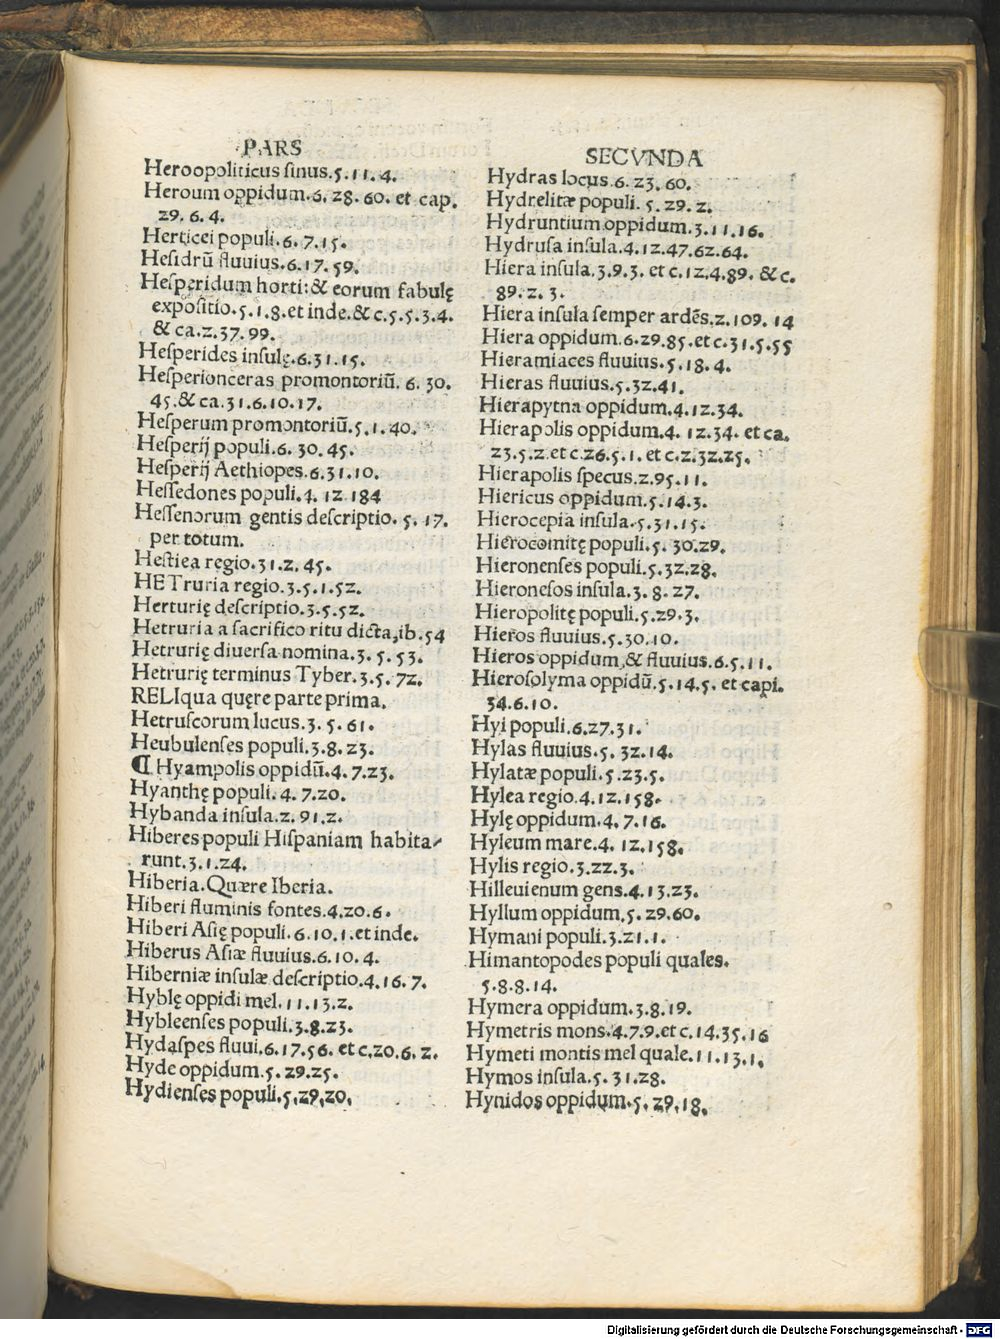 PARS
Heroopoliticus sinus.5.11.4.
Heroum oppidum.6.28.60. et cap.
29.6.4.
Herticei populi.6.7.15.
Hesidrũ fluuius.6.17.59.
Hesperidum horti:& eorum fabulę
expositio.5.1.8.et inde.& c.5.5.3.4.
& ca.2.37.99.
Hesperides insulę.6.31.15.
Hesperionceras promontoriũ. 6. 30.
45.& ca.31.6.10.17.
Hesperum promontoriũ.5.1.40.
Hesperij populi.6. 30.45.
Hesperij Aethiopes.6.31.10.
Hessedones populi.4. 12 184
Hessenorum gentis descriptio. 5. 17.
per totum.
Hestiea regio.31.2. 45.
HETruria regio.3.5.1.52.
Herturię descriptio.3.5.52.
Hetruria a sacrifico ritu dicta,ib.54
Hetrurię diuersa nomina.3. 5. 53.
Hetrurię terminus Tyber.3.5. 72.
RELIqua quęre parte prima.
Hetruscorum lucus.3. 5. 61.
Heubulenses populi.3.8.23.
¶ Hyampolis oppidũ.4.7.23.
Hyanthę populi.4. 7.20.
Hybanda insula.2. 91.2.
Hiberes populi Hispaniam habita-
runt.3.1.24.
Hiberia.Quære Iberia.
Hiberi fluminis fontes.4.20.6.
Hiberi Asię populi.6.10.1.et inde.
Hiberus Asiæ fluuius.6.10.4.
Hiberniæ insulæ descriptio.4.16.7.
Hyblę oppidi mel.11.13.2.
Hybleenses populi.3.8.23.
Hydaspes fluui.6.17.56. et c.20.6.2.
Hyde oppidum.5.29.25.
Hydienses populi.5.29.20.
SECVNDA
Hydras locus.6.23.60.
Hydrelitæ populi.5.29.2.
Hydruntium oppidum.3.11.16.
Hydrusa insula.4.12.47.62.64.
Hiera insula.3.9.3. et c.12.4.89. & c.
89.2.3.
Hiera insula semper ardẽs.2.109. 14
Hiera oppidum.6.29.85.et c.31.5.55
Hieramiaces fluuius.5.18.4.
Hieras fluuius.5.32.41.
Hierapytna oppidum.4.12.34.
Hierapolis oppidum.4. 12.34. et ca.
23.5.2.et c.26.5.1. et c.2.32.25.
Hierapolis specus.2.95.11.
Hiericus oppidum.5.14.3.
Hierocepia insula.5.31.15.
Hierocomitę populi.5. 30.29.
Hieronenses populi.5.32.28.
Hieronesos insula.3. 8.27.
Hieropolitę populi.5.29.3.
Hieros fluuius.5.30.10.
Hieros oppidum,& fluuius.6.5.11.
Hierosolyma oppidũ.5.14.5. et capi.
34.6.10.
Hyi populi.6.27.31.
Hylas fluuius.5. 32.14.
Hylatæ populi.5.23.5.
Hylea regio.4.12.158.
Hylę oppidum.4.7.16.
Hyleum mare.4. 12.158.
Hylis regio.3.22.3.
Hilleuienum gens.4.13.23.
Hyllum oppidum.5. 29.60.
Hymani populi.3.21.1.
Himantopodes populi quales.
5.8.8.14.
Hymera oppidum.3.8.19.
Hymetris mons.4.7.9.et c.14.35.16
Hymeti montis mel quale.11.13.1.
Hymos insula.5. 31.28.
Hynidos oppidum.5. 29.18.
Digitalisierung gefördert durch die Deutsche Forschungsgemeinschaft - DFG